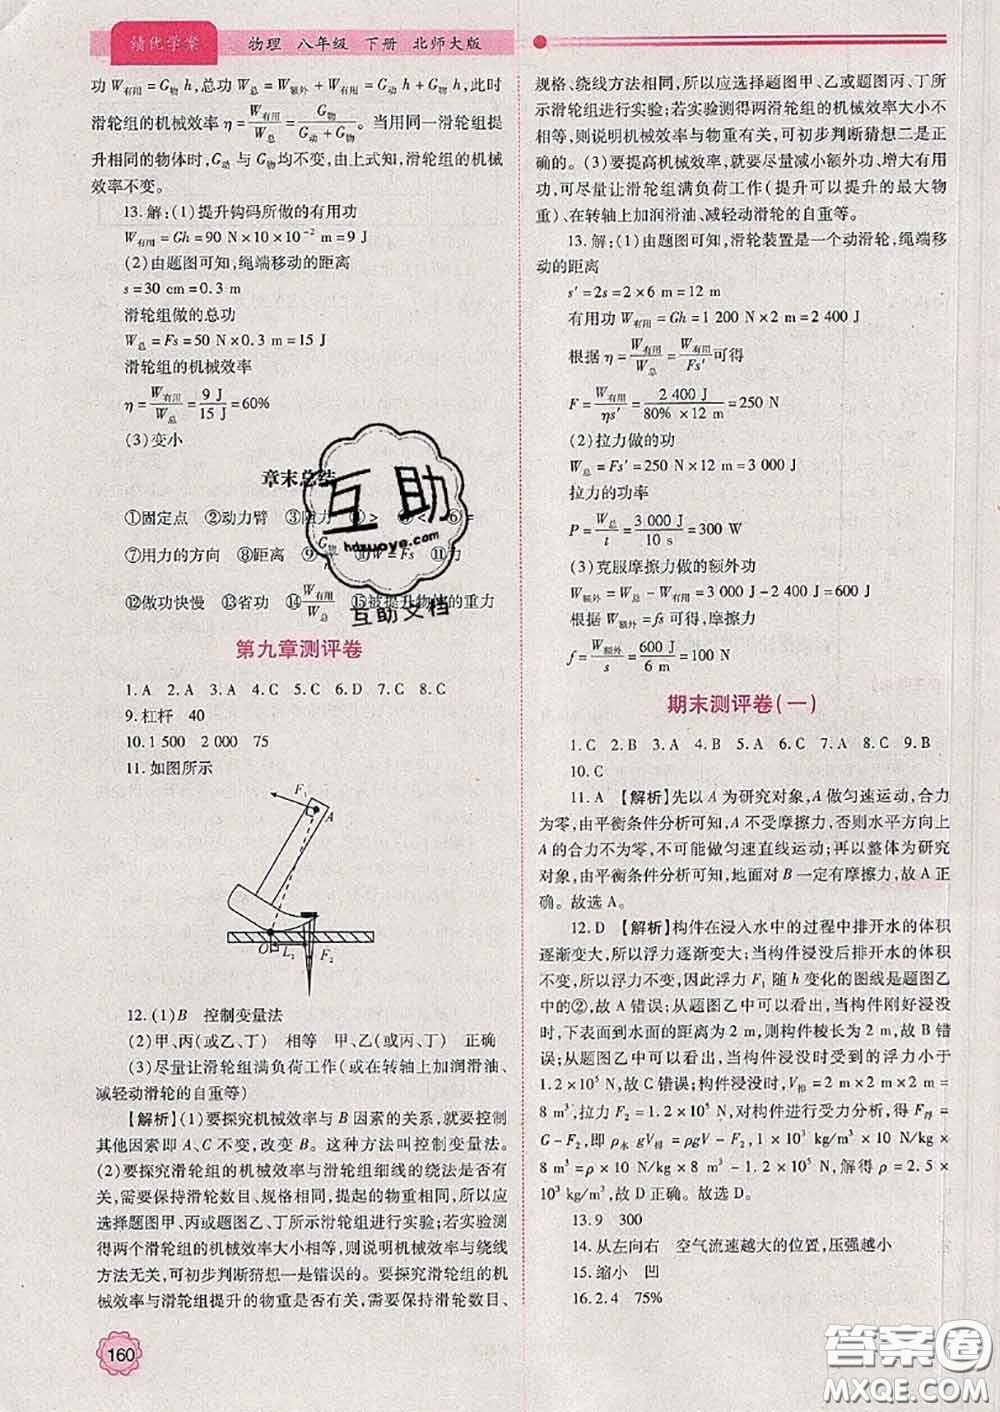 绩优学案
物理 八年级 下册 北师大版
功 W有用=G物 h,总功 W总=W额外+W有用=G动 h+G物 h,此时
滑轮组的机械效率 η=W有用/W总=G物/(G动+G物)。当用同一滑轮组提
升相同的物体时,G动 与 G物 均不变,由上式知,滑轮组的机械
效率不变。
13.解:(1)提升钩码所做的有用功
W有用=Gh=90 N×10×10⁻² m=9 J
(2)由题图可知,绳端移动的距离
s=30 cm=0.3 m
滑轮组做的总功
W总=Fs=50 N×0.3 m=15 J
滑轮组的机械效率
η=W有用/W总=9 J/15 J=60%
(3)变小
章末总结
①固定点 ②动力臂 ③阻力 > < ⑥=
⑦用力的方向 ⑧距离 ⑨G物 ⑩W=Fs ⑪力
⑫做功快慢 ⑬省功 ⑭W有用/W总 ⑮被提升物体的重力
第九章测评卷
1.A 2.A 3.A 4.C 5.C 6.D 7.C 8.C
9.杠杆 40
10.1 500 2 000 75
11.如图所示
F₁
A
O L₂ F₂
12.(1)B 控制变量法
(2)甲、丙(或乙、丁) 相等 甲、乙(或丙、丁) 正确
(3)尽量让滑轮组满负荷工作(或在转轴上加润滑油、
减轻动滑轮的自重等)
【解析】(1)要探究机械效率与 B 因素的关系,就要控制
其他因素即 A、C 不变,改变 B。这种方法叫控制变量法。
(2)要探究滑轮组的机械效率与滑轮组细线的绕法是否有
关,需要保持滑轮数目、规格相同,提起的物重相同,所以应
选择题图甲、丙或题图乙、丁所示滑轮组进行实验;若实验测
得两个滑轮组的机械效率大小相等,则说明机械效率与绕线
方法无关,可初步判断猜想一是错误的。要探究滑轮组的机
械效率与滑轮组提升的物重是否有关,需要保持滑轮数目、
160
规格、绕线方法相同,所以应选择题图甲、乙或题图丙、丁所
示滑轮组进行实验;若实验测得两滑轮组的机械效率大小不
相等,则说明机械效率与物重有关,可初步判断猜想二是正
确的。(3)要提高机械效率,就要尽量减小额外功、增大有用
功,可尽量让滑轮组满负荷工作(提升可以提升的最大物
重)、在转轴上加润滑油、减轻动滑轮的自重等。
13.解:(1)由题图可知,滑轮装置是一个动滑轮,绳端移
动的距离
s′=2s=2×6 m=12 m
有用功 W有用=Gh=1 200 N×2 m=2 400 J
根据 η=W有用/W总=W有用/Fs′可得
F=W有用/ηs′=2 400 J/(80%×12 m)=250 N
(2)拉力做的功
W总=Fs′=250 N×12 m=3 000 J
拉力的功率
P=W总/t=3 000 J/10 s=300 W
(3)克服摩擦力做的额外功
W额外=W总-W有用=3 000 J-2 400 J=600 J
根据 W额外=fs 可得,摩擦力
f=W额外/s=600 J/6 m=100 N
期末测评卷(一)
1.C 2.B 3.A 4.B 5.A 6.C 7.A 8.C 9.B
10.C
11.A 【解析】先以 A 为研究对象,A 做匀速运动,合力
为零,由平衡条件分析可知,A 不受摩擦力,否则水平方向上
A 的合力不为零,不可能做匀速直线运动;再以整体为研究
对象,由平衡条件分析可知,地面对 B 一定有摩擦力,故 A 正
确。故选 A。
12.D 【解析】构件在浸入水中的过程中排开水的体积
逐渐变大,所以浮力逐渐变大;当构件浸没后排开水的体积
不变,所以浮力不变,因此浮力 F₁ 随 h 变化的图线是题图乙
中的②,故 A 错误;从题图乙中可以看出,当构件刚好浸没
时,下表面到水面的距离为 2 m,则构件棱长为 2 m,故 B 错
误;从题图乙中可以看出,当构件浸没时受到的浮力小于
1.2×10⁵ N,故 C 错误;构件浸没时,V排=2 m×2 m×2 m=
8 m³,拉力 F₂=1.2×10⁵ N,对构件进行受力分析,得 F浮=
G-F₂,即 ρ水 gV排=ρgV-F₂,1×10³ kg/m³×10 N/kg×
8 m³=ρ×10 N/kg×8 m³-1.2×10⁵ N,解得 ρ=2.5×
10³ kg/m³,故 D 正确。故选 D。
13.9 300
14.从左向右 空气流速越大的位置,压强越小
15.缩小 凹
16.2.4 75%
互助
hdzuoye.com
互助文档
答案卷
MXQE.COM